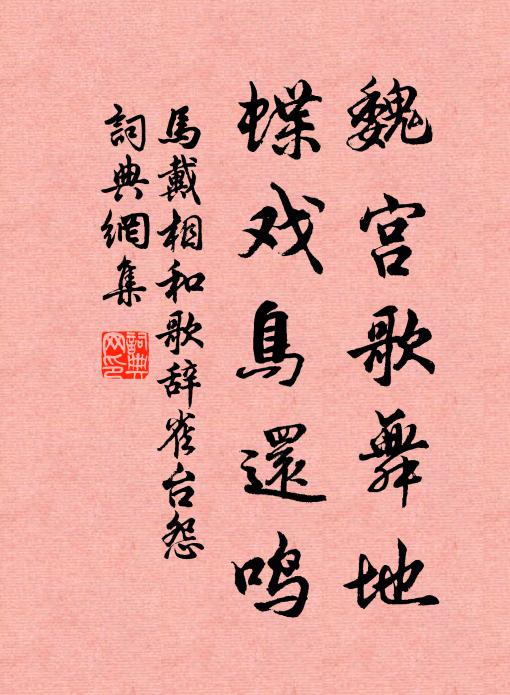 魏宫歌舞地
蝶戏鳥還鸣
馬戴相和歌辞雀台怨
詞典網集
詞典
网印